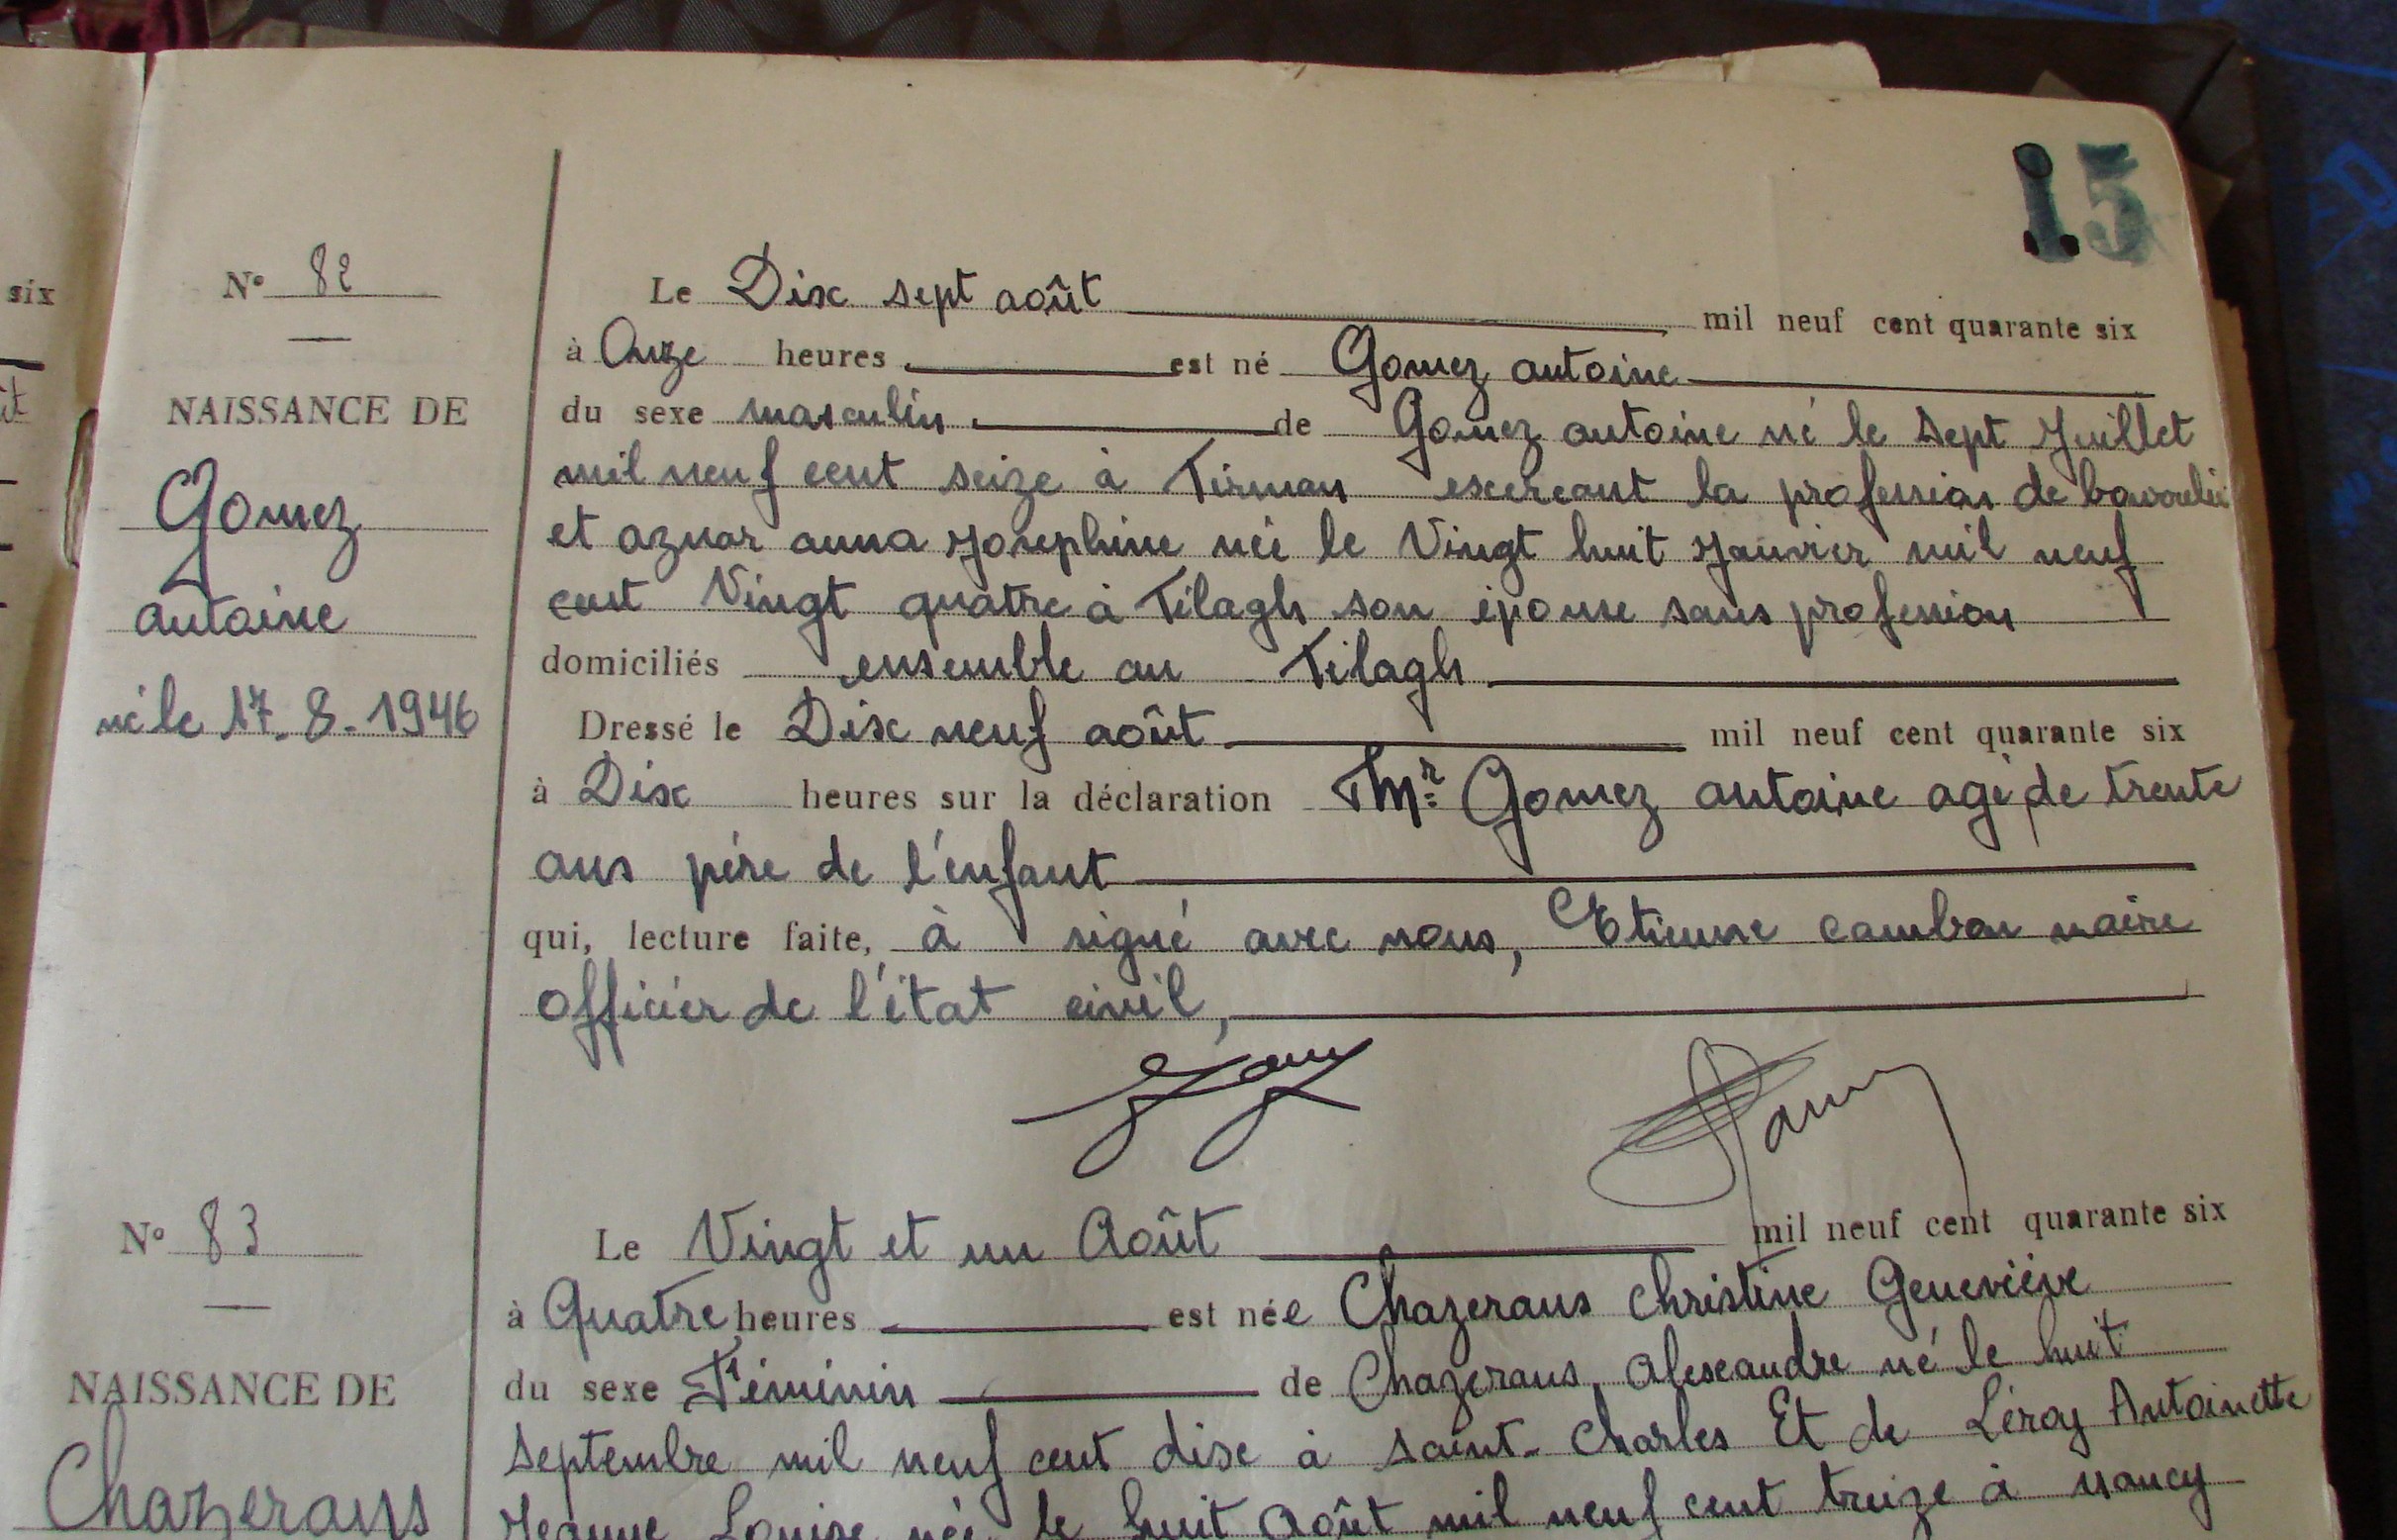 15
six
N° 82
Le Dix sept août mil neuf cent quarante six
à Onze heures est né Gomez antoine
NAISSANCE DE
du sexe masculin de Gomez antoine né le sept Juillet
mil neuf cent seize à Tirman exerçant la profession de
Gomez
et aznar anna Josephine née le Vingt huit Janvier mil neuf
cent Vingt quatre à Télagh son épouse sans profession
antoine
domiciliés ensemble au Télagh
né le 17.8.1946
Dressé le Dix neuf août mil neuf cent quarante six
à Dix heures sur la déclaration Mr Gomez antoine agé de trente
ans père de l'enfant
qui, lecture faite, à signé avec nous, Etienne cambon maire
officier de l'état civil,
N° 83
Le Vingt et un Août mil neuf cent quarante six
à Quatre heures est née Chazerans Christine Geneviève
NAISSANCE DE
du sexe Féminin de Chazerans Alexandre né le huit
septembre mil neuf cent dix à saint-Charles Et de Léroy Antoinette
Chazerans
Jeanne Louise née le huit Août mil neuf cent treize à nancy